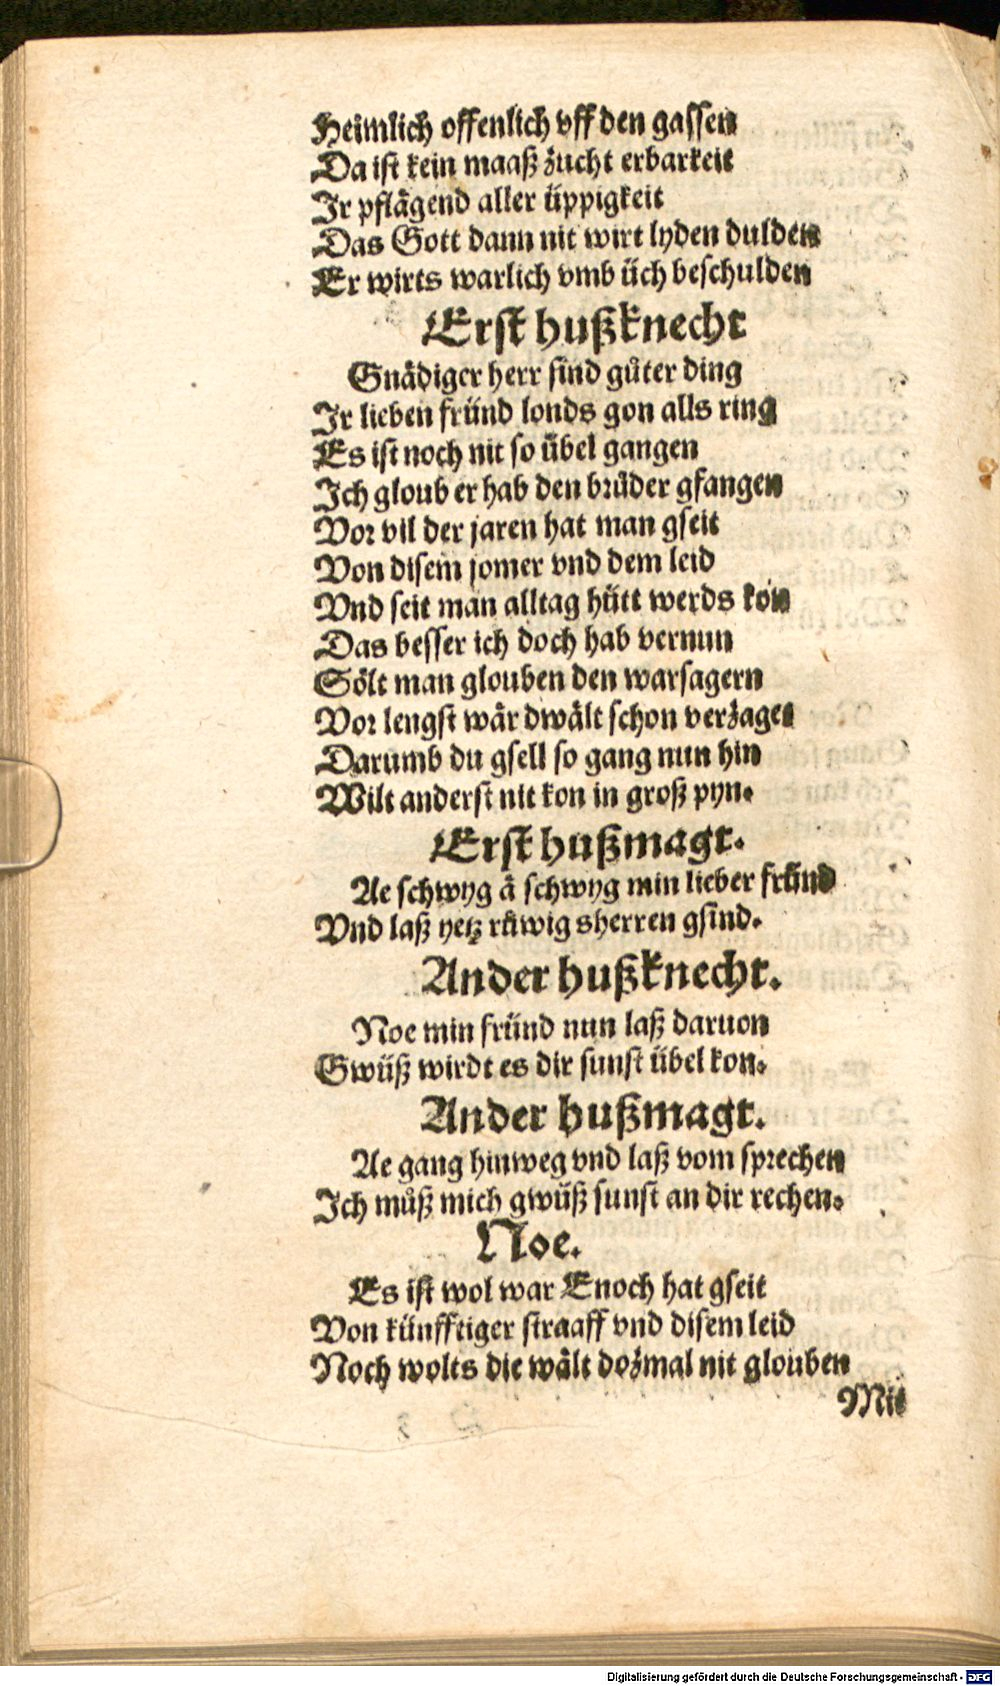 Heimlich offenlich vff den gassen
Da ist kein maaß zucht erbarkeit
Ir pflägend aller üppigkeit
Das Gott dann nit wirt lyden dulden
Er wirts warlich vmb üch beschulden
Erst hußknecht
Gnädiger herr sind gůter ding
Ir lieben fründ londs gon alls ring
Es ist noch nit so übel gangen
Ich gloub er hab den brůder gfangen
Vor vil der jaren hat man gseit
Von disem jomer vnd dem leid
Vnd seit man alltag hütt werds kon
Das besser ich doch hab vernun
Sölt man glouben den warsagern
Vor lengst wär dwält schon verzagen
Darumb du gsell so gang nun hin
Wilt anderst nit kon in groß pyn.
Erst hußmagt.
Ae schwyg ä schwyg min lieber fründ
Vnd laß yetz růwig sherren gsind.
Ander hußknecht.
Noe min fründ nun laß daruon
Gwüß wirdt es dir sunst übel kon.
Ander hußmagt.
Ae gang hinweg vnd laß vom sprechen
Ich můß mich gwüß sunst an dir rechen.
Noe.
Es ist wol war Enoch hat gseit
Von künfftiger straaff vnd disem leid
Noch wolts die wält dozmal nit glouben
Mit
Digitalisierung gefördert durch die Deutsche Forschungsgemeinschaft - DFG